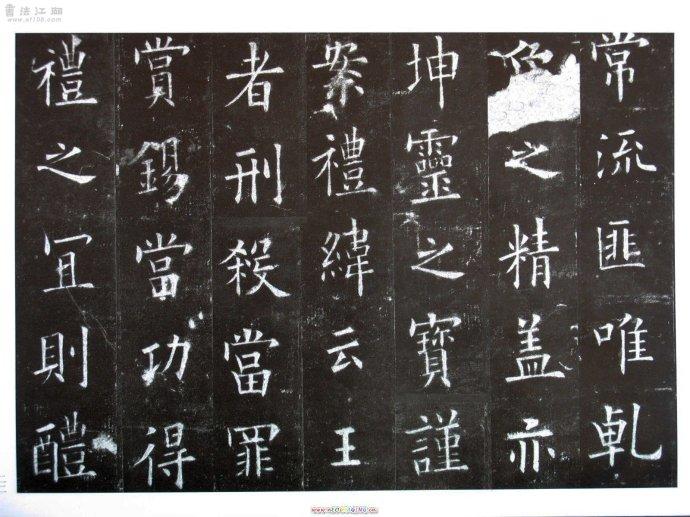 書法江湖
www.sf108.com
常流匪唯乹
象之精盖亦
坤靈之寶謹
案禮緯云王
者刑殺當罪
賞錫當功得
禮之宜則醴